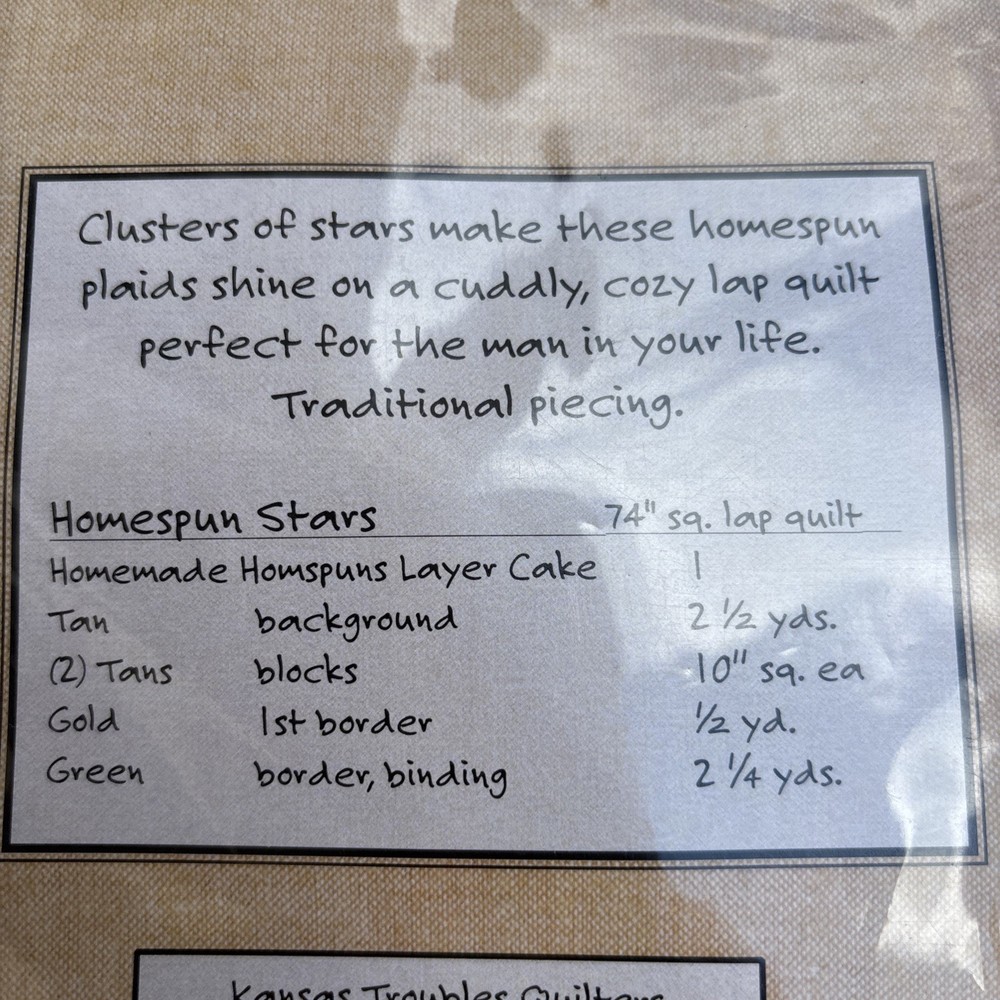 Clusters of stars make these homespun
plaids shine on a cuddly, cozy lap quilt
perfect for the man in your life.
Traditional piecing.
Homespun Stars 74" sq. lap quilt
Homemade Homspuns Layer Cake 1
Tan background 2 1/2 yds.
(2) Tans blocks 10" sq. ea
Gold 1st border 1/2 yd.
Green border, binding 2 1/4 yds.
Kansas Troubles Quilters